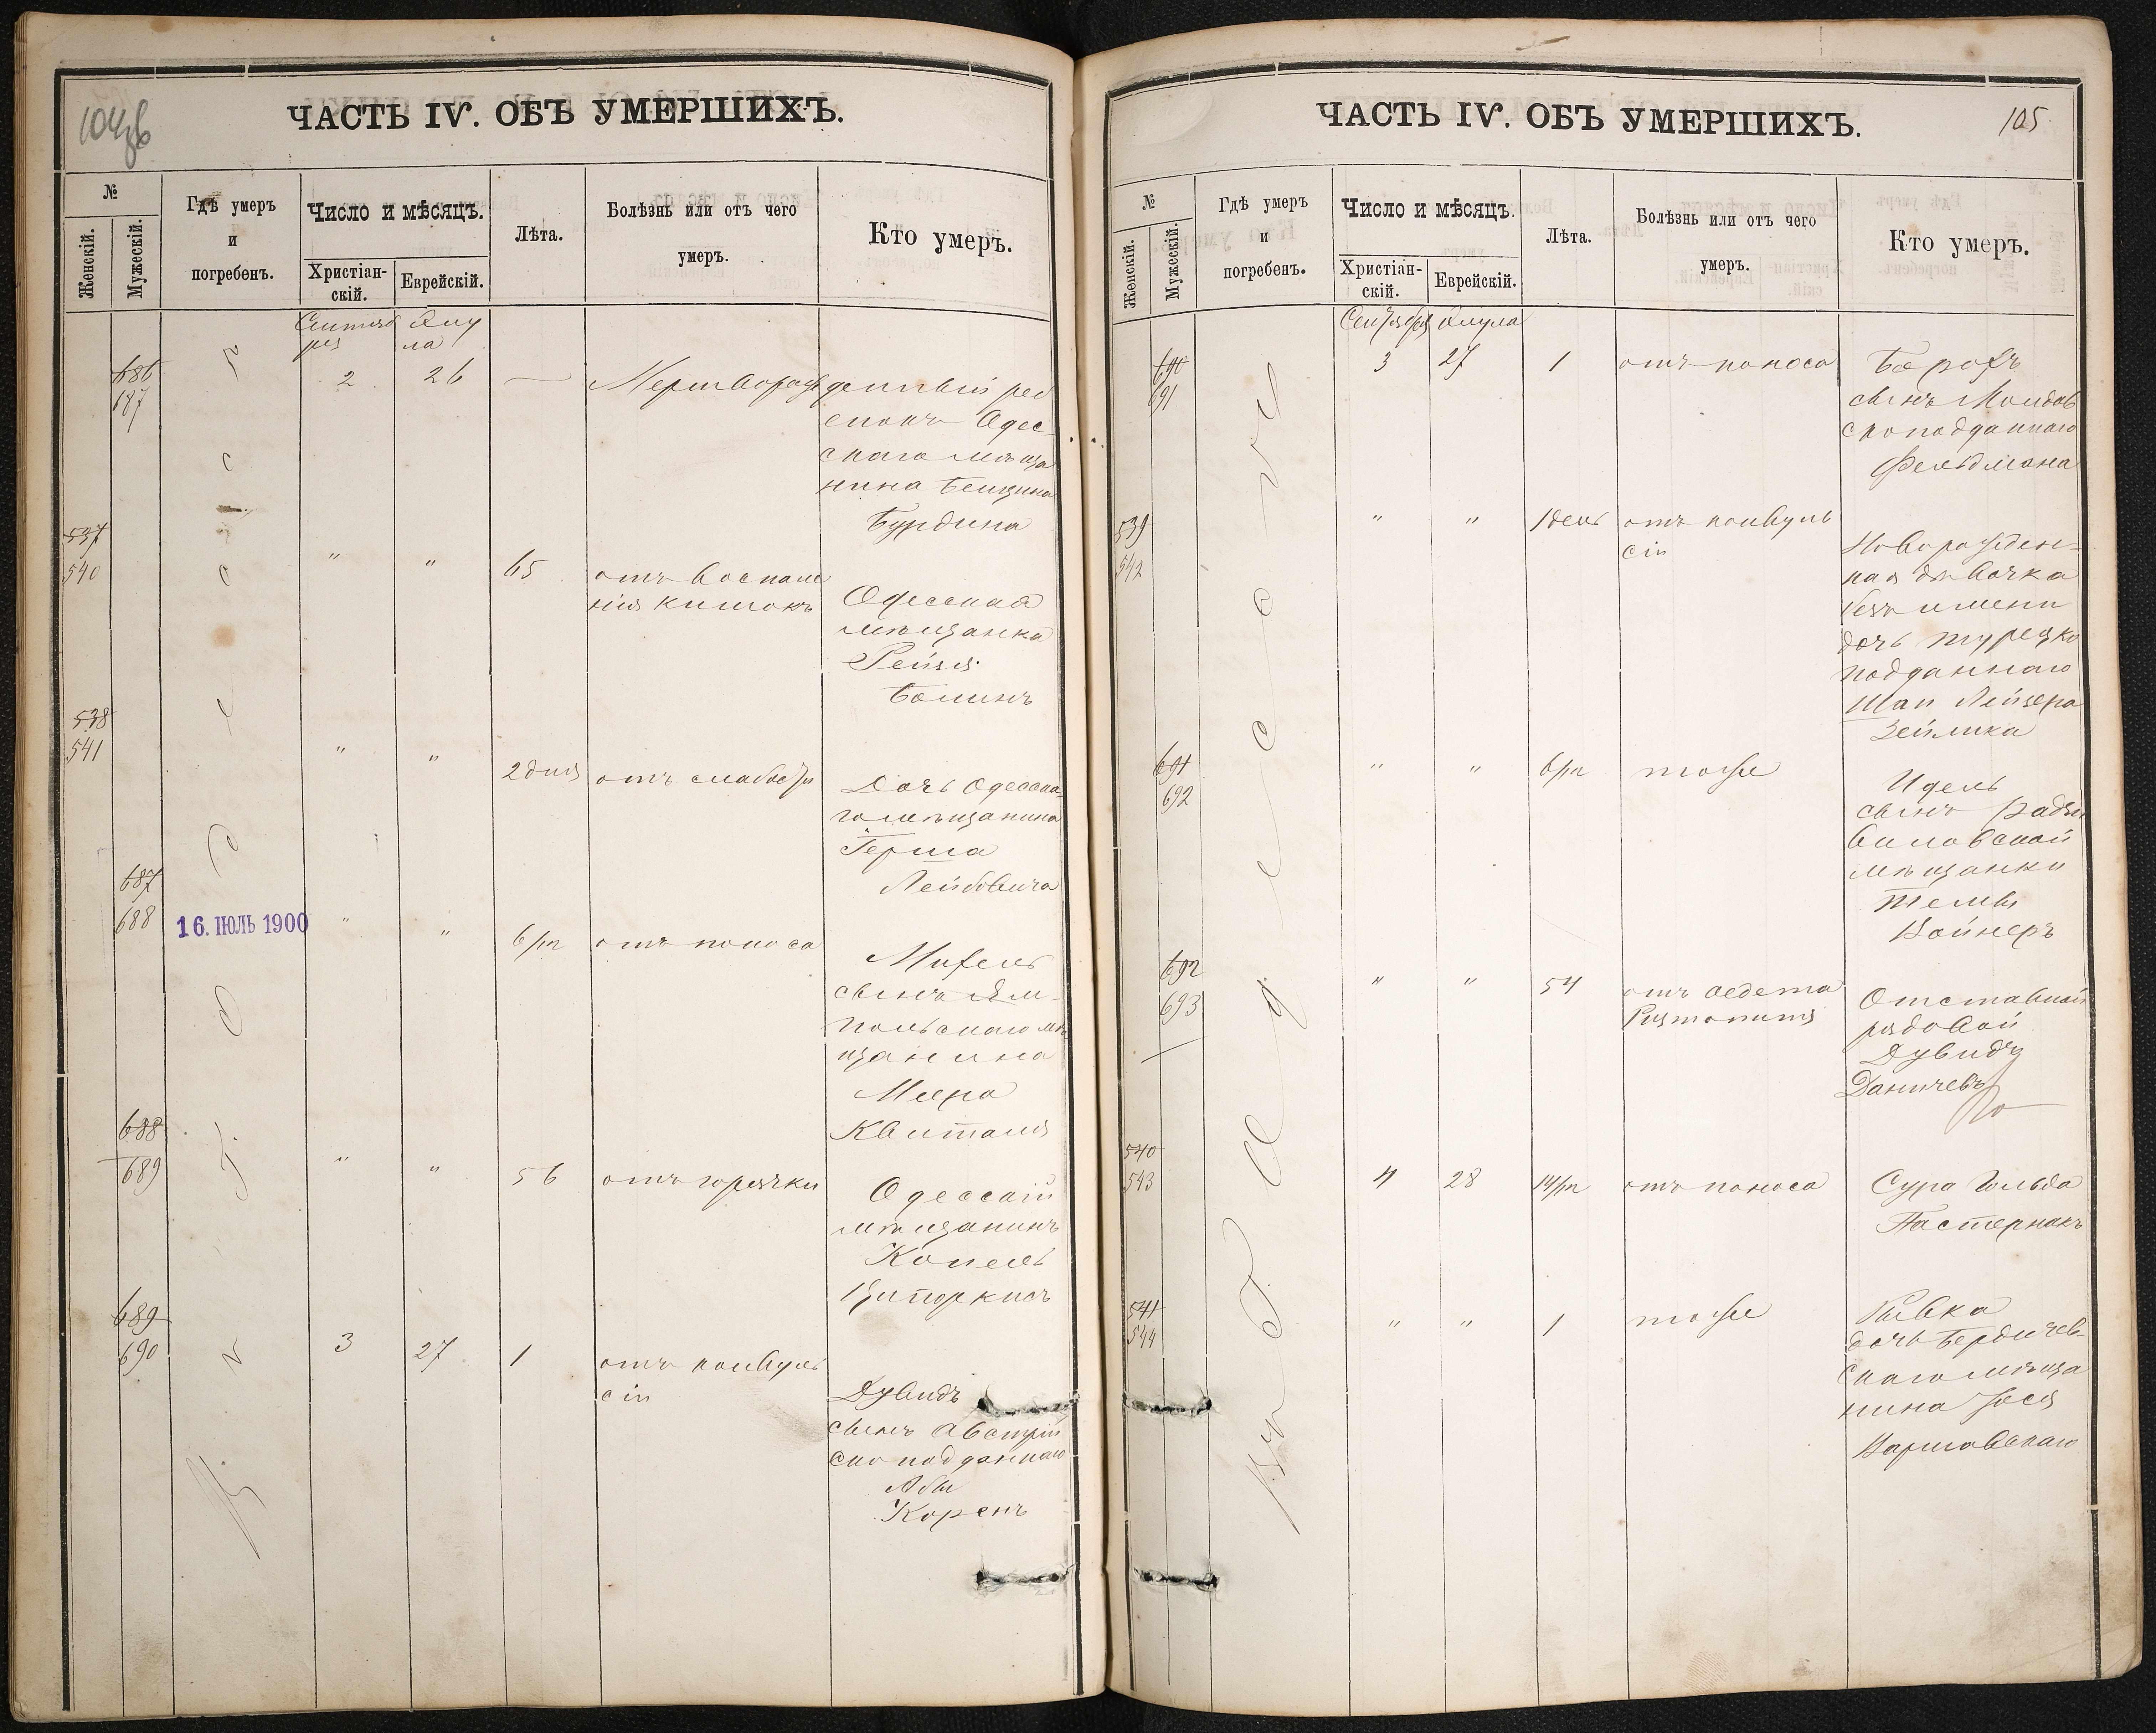 104об
ЧАСТЬ IV. ОБЪ УМЕРШИХЪ.
№
Женскій.
Мужескій.
Гдѣ умеръ
и
погребенъ.
Число и мѣсяцъ.
Христіан-
скій.
Еврейскій.
Лѣта.
Болѣзнь или отъ чего
умеръ.
Кто умеръ.
Сентяб Элу
ря ла
686
687
2 26 — Мертворожденный реб
енокъ Одес
скаго мѣща
нина
Бурдина
537
540
" " 65 отъ воспале
нія кишокъ
Одесская
мѣщанка
Рейзя
538
541
" " 2 дня отъ слабости
Дочь Одесска
го мѣщанина
Герша
Лейбовича
687
688
16. ІЮЛЬ 1900
" " 6/м отъ поноса
Михель
сынъ Ям-
польскаго мѣ
щанина
Меера
Квиталя
688
689
" " 56 отъ горячки
Одесскій
мѣщанинъ
Копель
Ципоркинъ
689
690
3 27 1 отъ конвуль
сіи
Дувидъ
сынъ Австрій
ско подданнаго
Абы
Коренъ
въ городѣ Одессѣ
ЧАСТЬ IV. ОБЪ УМЕРШИХЪ.
105
№
Женскій.
Мужескій.
Гдѣ умеръ
и
погребенъ.
Число и мѣсяцъ.
Христіан-
скій.
Еврейскій.
Лѣта.
Болѣзнь или отъ чего
умеръ.
Кто умеръ.
Сентября Элула
690
691
3 27 1 отъ поноса
Борохъ
сынъ Молдав
скоподданнаго
Фельдмана
539
542
" " 1 день отъ конвуль
сіи
Новорожден-
ная дѣвочка
безъ имени
дочь турецко
подданнаго
Лейзера
Зейлика
691
692
" " 6/м тоже
Идель
сынъ Радзи
виловской
мѣщанки
Войнеръ
692
693
" " 54 отъ oedema
Отставной
рядовой
Дувидъ
Даничевъ
540
543
4 28 14/м отъ поноса
Сура Гольда
Пастернакъ
541
544
" " 1 тоже
Ривка
дочь Бердичев-
скаго мѣща
нина Іося
Варшавскаго
въ Одессѣ